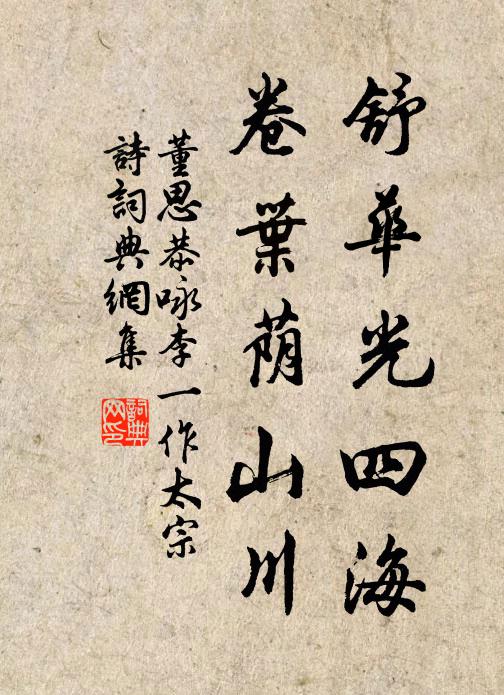 舒華光四海
卷葉荫山川
董思恭咏李一作太宗
詩詞典網集
詞典网印